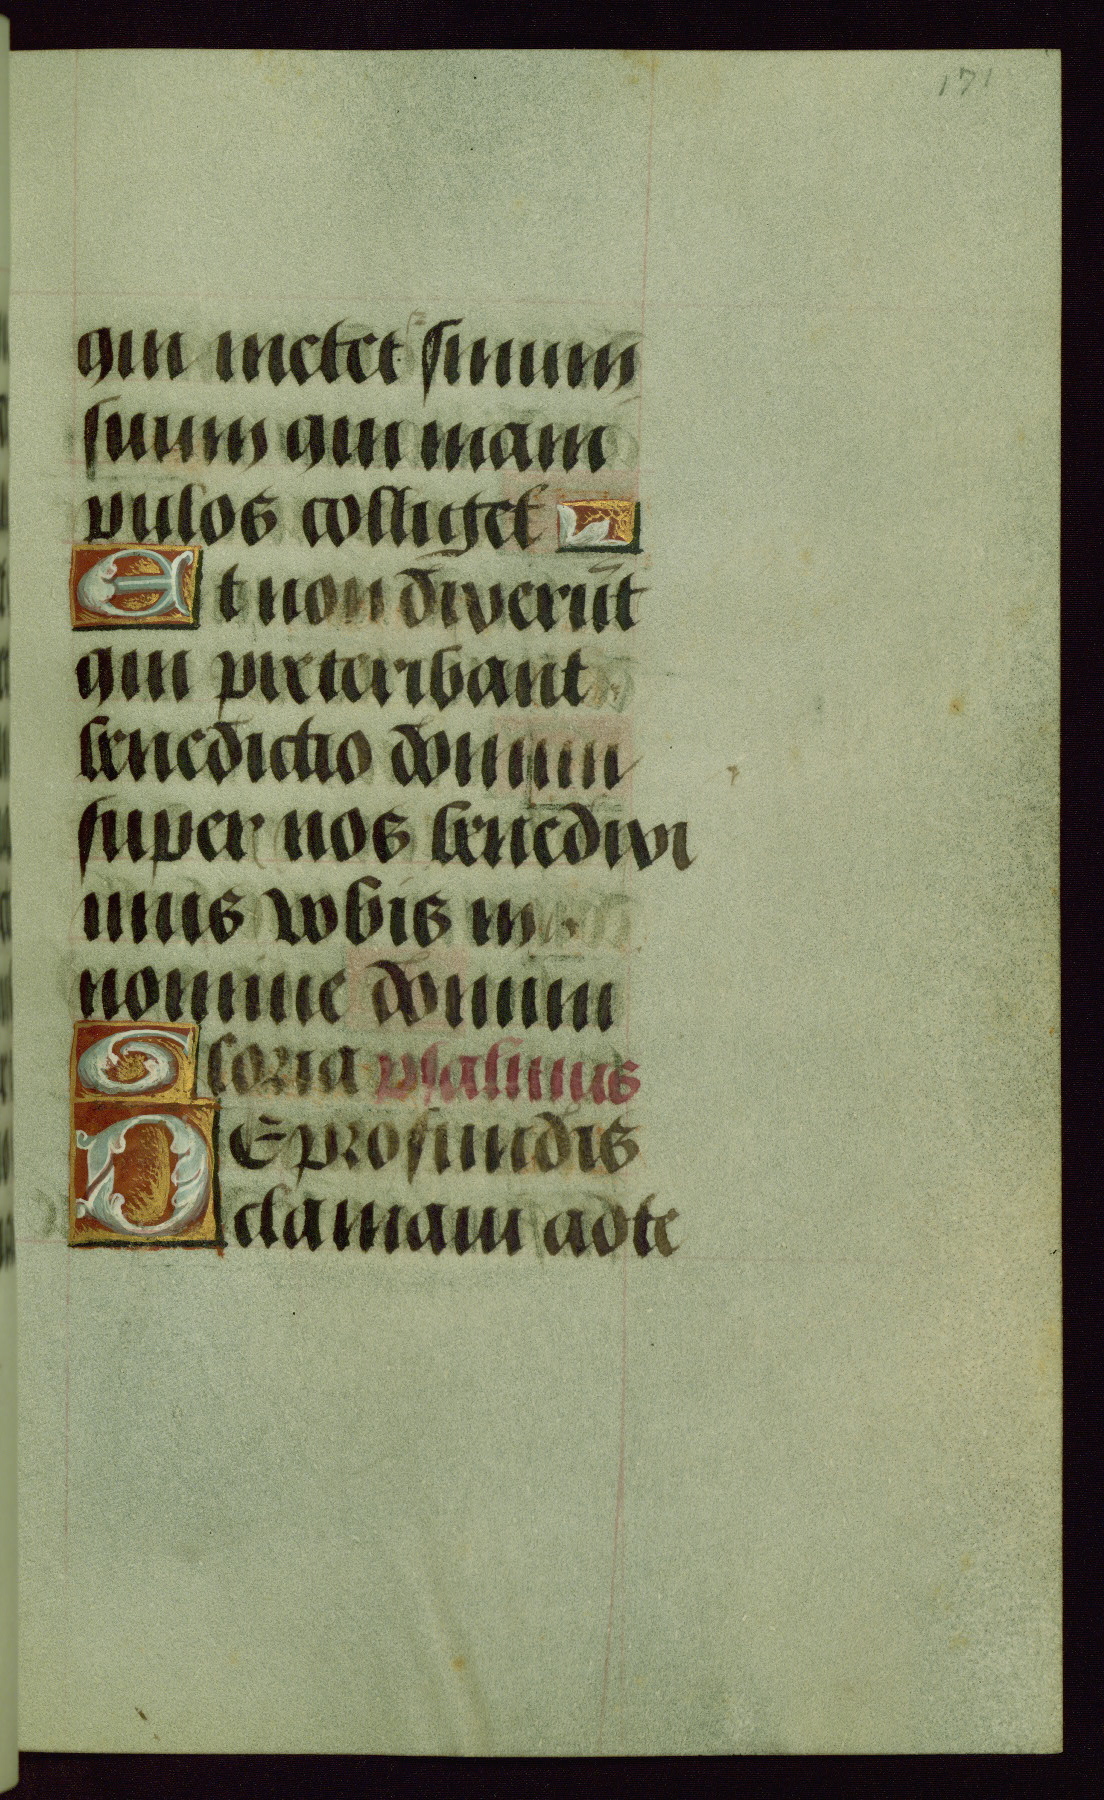 171
qui metet sinum
suum qui mani
pulos colliget
Et non dixerūt
qui preteribant
benedictio domini
super nos benedixi
mus vobis in
nomine domini
Gloria psalmus
DE profundis
clamaui ad te